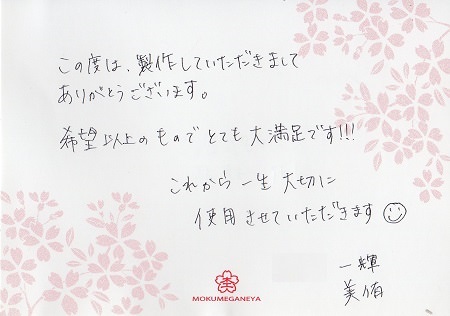 この度は、製作していただきまして
ありがとうございます。
希望以上のもので とても 大満足です!!!
これから 一生 大切に
使用させていただきます
一輝
美侑
MOKUMEGANEYA